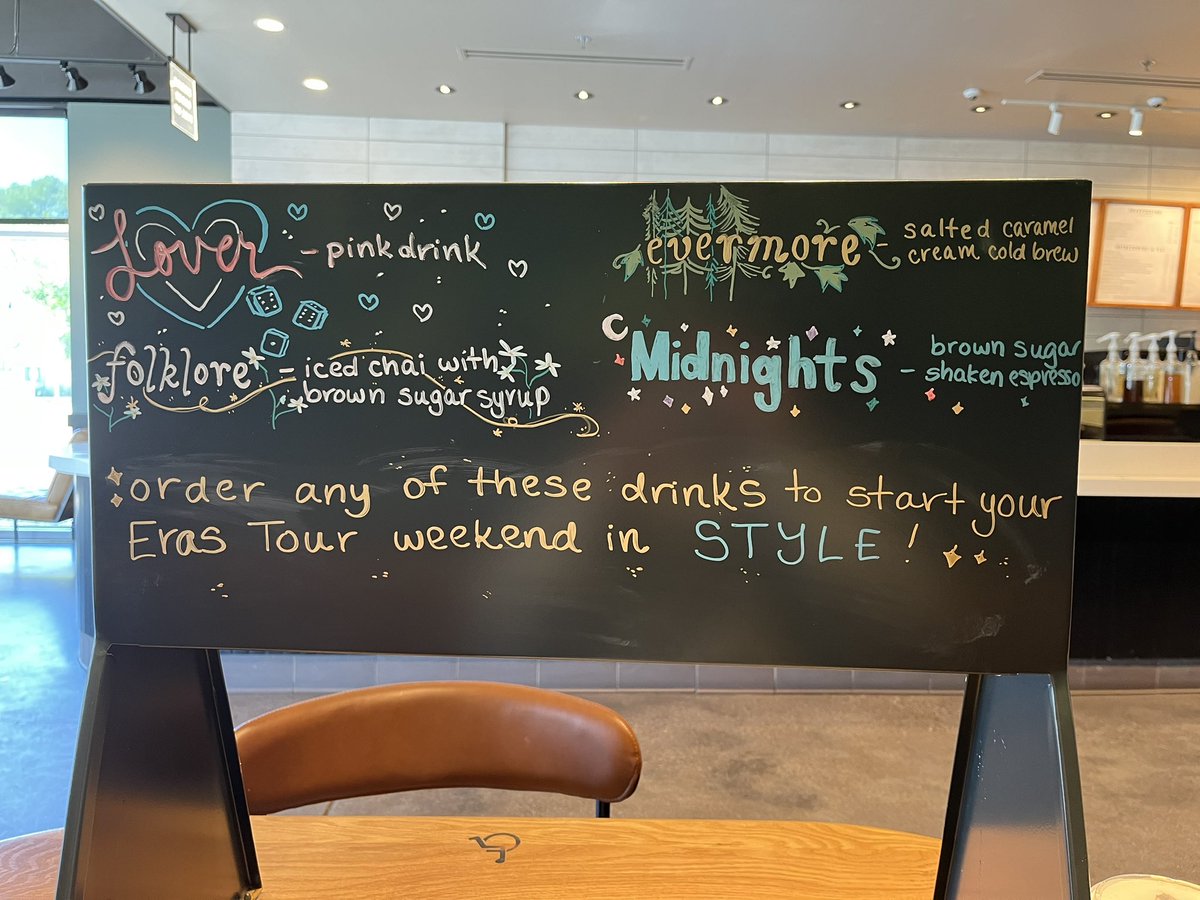 Lover - pink drink
folklore - iced chai with
brown sugar syrup
evermore - salted caramel
cream cold brew
Midnights - brown sugar
shaken espresso
order any of these drinks to start your
Eras Tour weekend in STYLE!